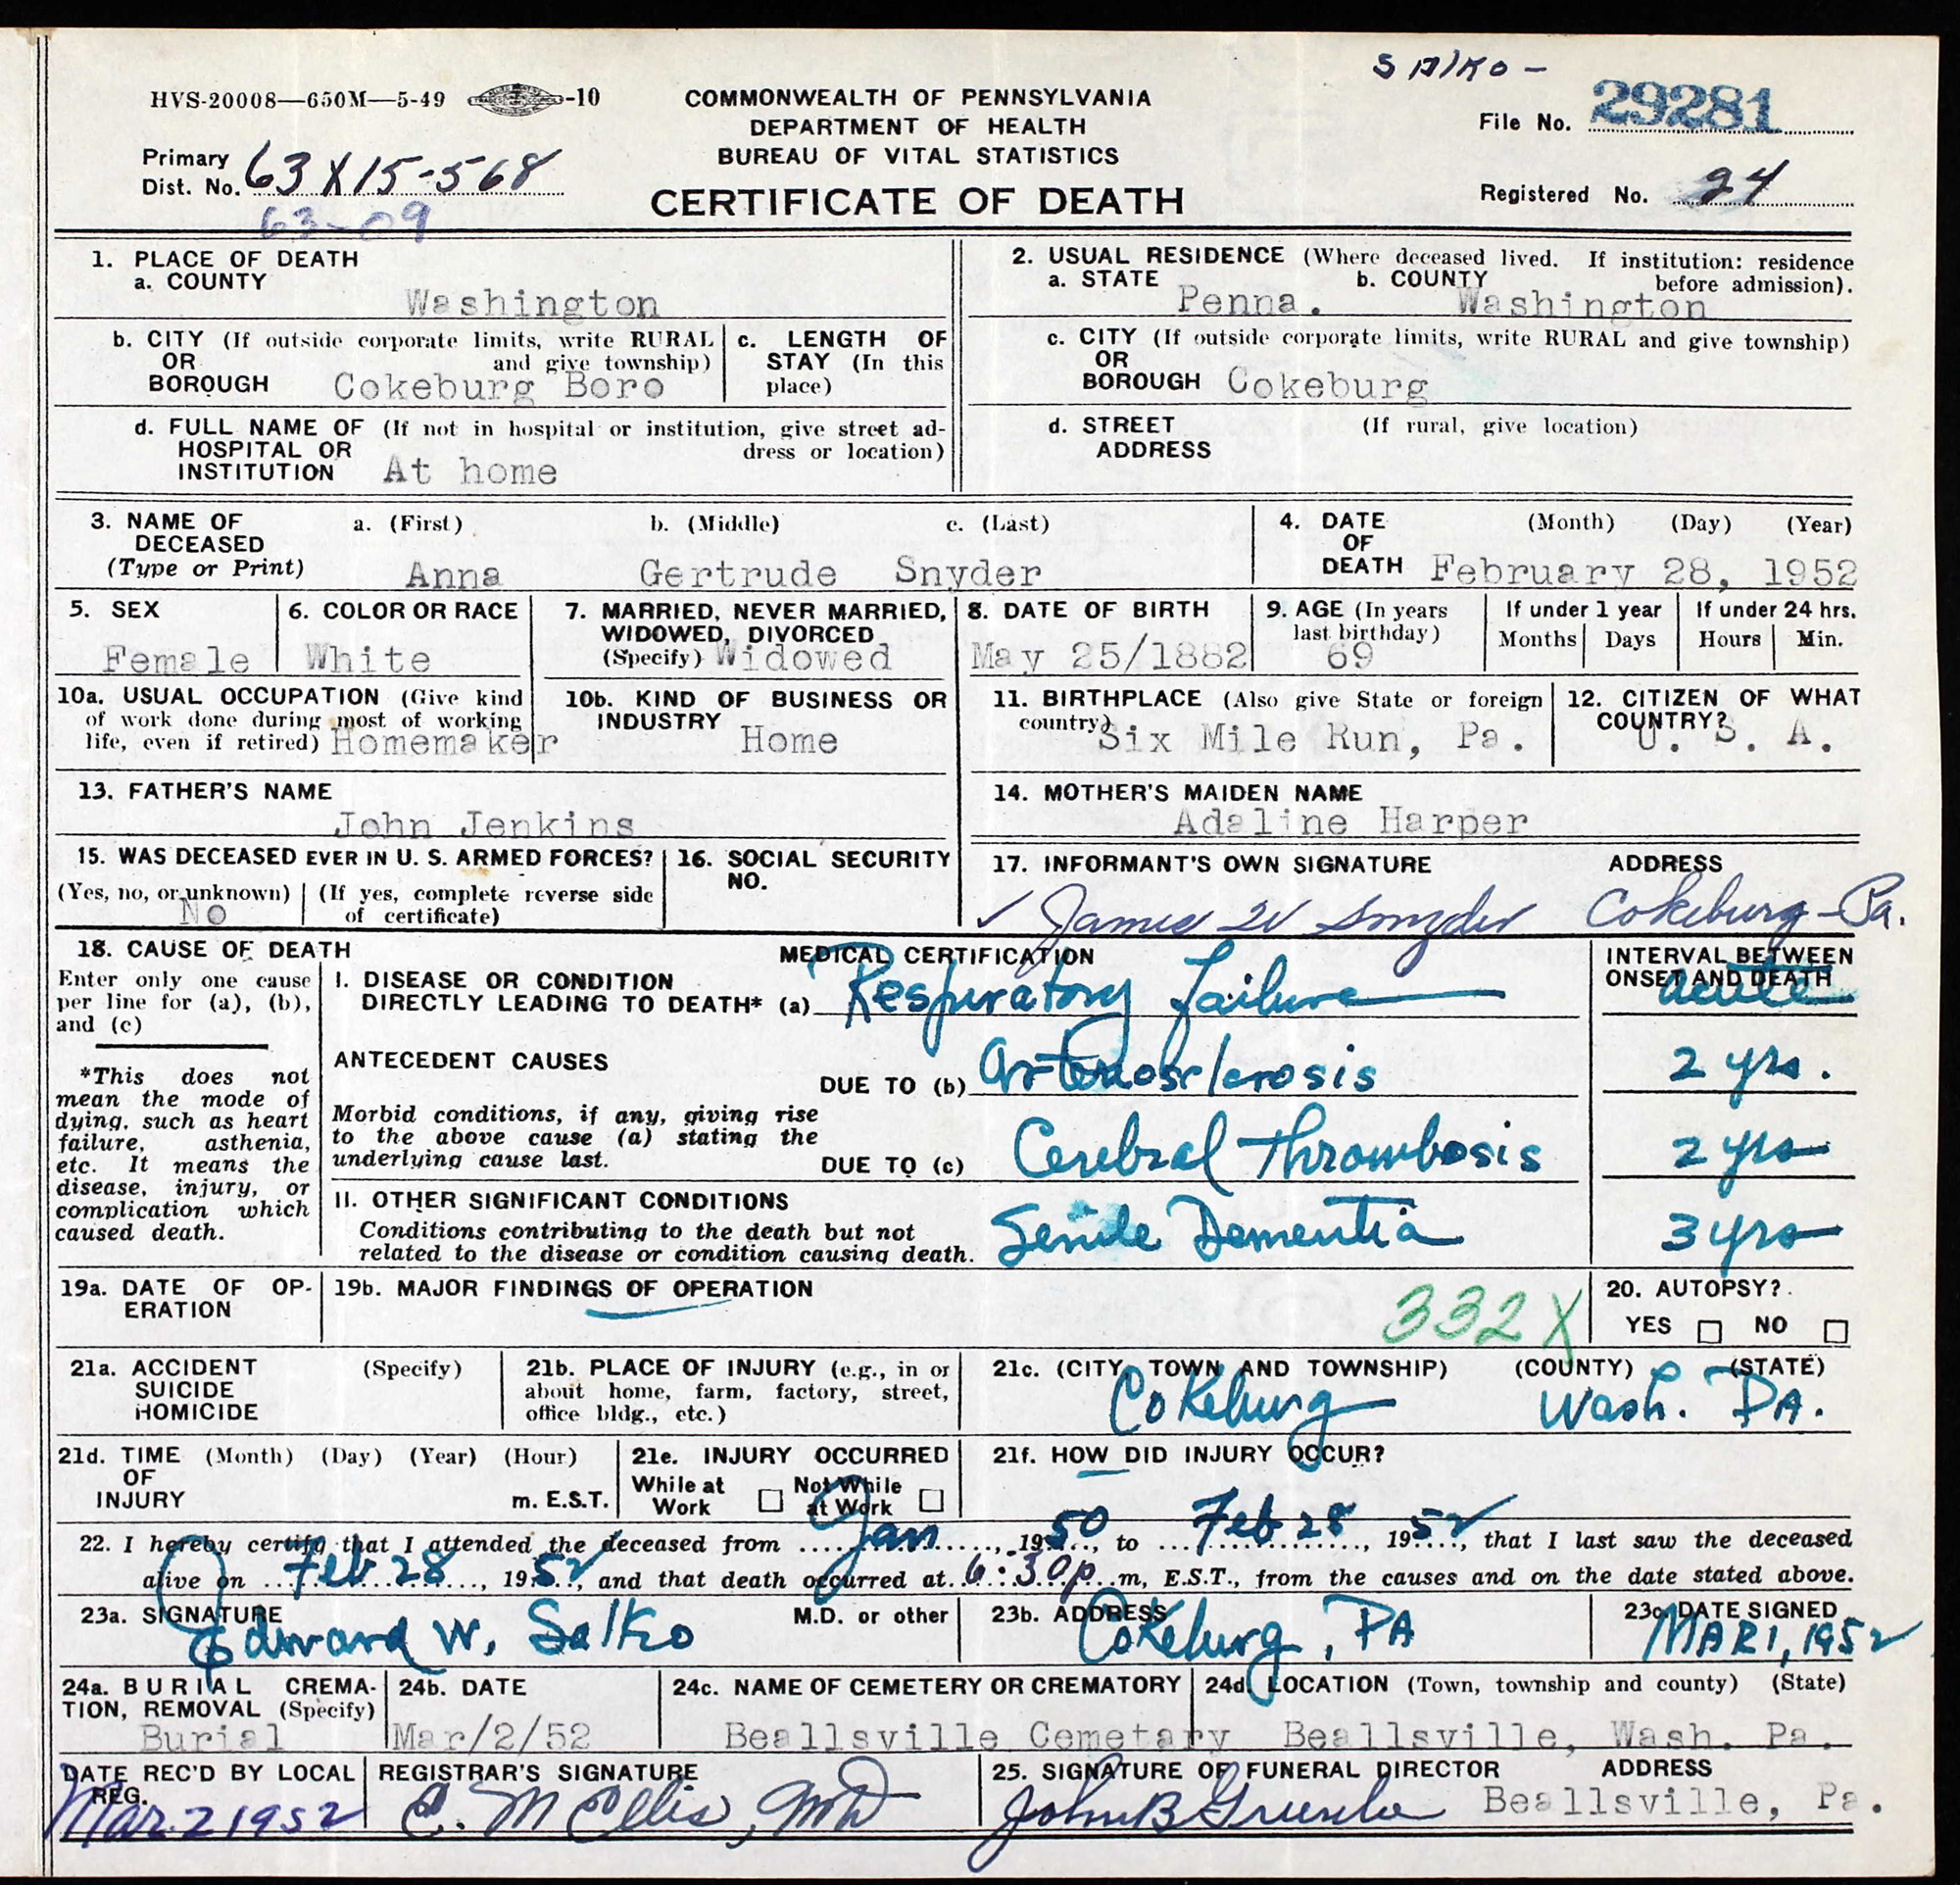 SAlKO -
HVS-20008—650M—5-49 -10
COMMONWEALTH OF PENNSYLVANIA
DEPARTMENT OF HEALTH
BUREAU OF VITAL STATISTICS
CERTIFICATE OF DEATH
File No. 29281
Primary
Dist. No. 63X15-568
63-09
Registered No. 24
1. PLACE OF DEATH
a. COUNTY
Washington
2. USUAL RESIDENCE (Where deceased lived. If institution: residence
a. STATE b. COUNTY before admission).
Penna. Washington
b. CITY (If outside corporate limits, write RURAL
OR and give township)
BOROUGH Cokeburg Boro
c. LENGTH OF
STAY (In this
place)
c. CITY (If outside corporate limits, write RURAL and give township)
OR
BOROUGH Cokeburg
d. FULL NAME OF (If not in hospital or institution, give street ad-
HOSPITAL OR dress or location)
INSTITUTION At home
d. STREET (If rural, give location)
ADDRESS
3. NAME OF a. (First) b. (Middle) c. (Last)
DECEASED
(Type or Print) Anna Gertrude Snyder
4. DATE (Month) (Day) (Year)
OF
DEATH February 28, 1952
5. SEX
Female
6. COLOR OR RACE
White
7. MARRIED, NEVER MARRIED,
WIDOWED, DIVORCED
(Specify) Widowed
8. DATE OF BIRTH
May 25/1882
9. AGE (In years
last birthday)
69
If under 1 year
Months Days
If under 24 hrs.
Hours Min.
10a. USUAL OCCUPATION (Give kind
of work done during most of working
life, even if retired) Homemaker
10b. KIND OF BUSINESS OR
INDUSTRY
Home
11. BIRTHPLACE (Also give State or foreign
country)
Six Mile Run, Pa.
12. CITIZEN OF WHAT
COUNTRY?
U. S. A.
13. FATHER'S NAME
John Jenkins
14. MOTHER'S MAIDEN NAME
Adaline Harper
15. WAS DECEASED EVER IN U. S. ARMED FORCES?
(Yes, no, or unknown) (If yes, complete reverse side
of certificate)
No
16. SOCIAL SECURITY
NO.
17. INFORMANT'S OWN SIGNATURE ADDRESS
✓ James W Snyder Cokeburg-Pa.
18. CAUSE OF DEATH
Enter only one cause
per line for (a), (b),
and (c)
*This does not
mean the mode of
dying, such as heart
failure, asthenia,
etc. It means the
disease, injury, or
complication which
caused death.
MEDICAL CERTIFICATION
I. DISEASE OR CONDITION
DIRECTLY LEADING TO DEATH* (a) Respiratory Failure
INTERVAL BETWEEN
ONSET AND DEATH
acute
ANTECEDENT CAUSES
DUE TO (b) Arteriosclerosis 2 yrs.
Morbid conditions, if any, giving rise
to the above cause (a) stating the
underlying cause last.
DUE TO (c) Cerebral Thrombosis 2 yrs
II. OTHER SIGNIFICANT CONDITIONS
Conditions contributing to the death but not
related to the disease or condition causing death.
Senile Dementia 3 yrs
19a. DATE OF OP-
ERATION
19b. MAJOR FINDINGS OF OPERATION
332X
20. AUTOPSY?
YES NO
21a. ACCIDENT (Specify)
SUICIDE
HOMICIDE
21b. PLACE OF INJURY (e.g., in or
about home, farm, factory, street,
office bldg., etc.)
21c. (CITY, TOWN AND TOWNSHIP) (COUNTY) (STATE)
Cokeburg Wash. PA.
21d. TIME (Month) (Day) (Year) (Hour)
OF
INJURY m. E.S.T.
21e. INJURY OCCURRED
While at Work
Not While at Work
21f. HOW DID INJURY OCCUR?
22. I hereby certify that I attended the deceased from Jan, 1950, to Feb 28, 1952, that I last saw the deceased
alive on Feb 28, 1952, and that death occurred at 6:30p m, E.S.T., from the causes and on the date stated above.
23a. SIGNATURE M.D. or other
Edward W. Salko
23b. ADDRESS
Cokeburg, PA
23c. DATE SIGNED
MAR 1, 1952
24a. BURIAL CREMA-
TION, REMOVAL (Specify)
Burial
24b. DATE
Mar/2/52
24c. NAME OF CEMETERY OR CREMATORY
Beallsville Cemetary
24d. LOCATION (Town, township and county) (State)
Beallsville, Wash. Pa.
DATE REC'D BY LOCAL
REG.
Mar. 2 1952
REGISTRAR'S SIGNATURE
E. M Ellis, MD
25. SIGNATURE OF FUNERAL DIRECTOR ADDRESS
John B Beallsville, Pa.